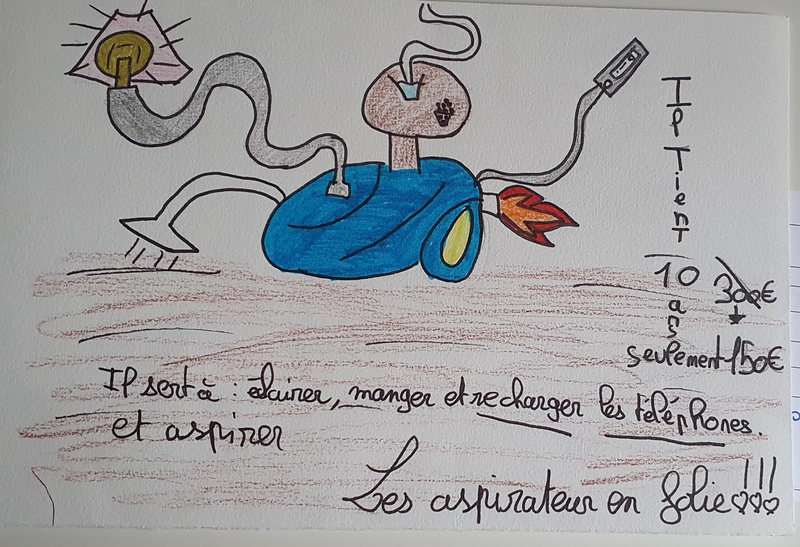 Il Tient
10 ans
300€
seulement 150€
Il sert à : éclairer, manger et recharger les téléphones.
et aspirer
Les aspirateur en folie!!!